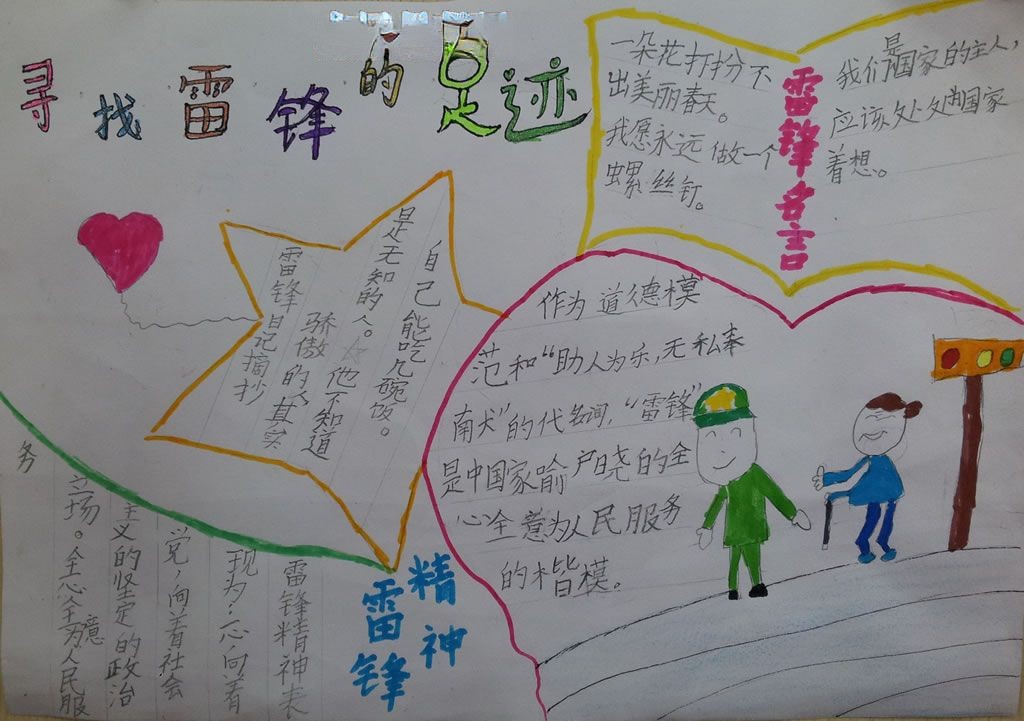 寻找雷锋的足迹
一朵花打扮不
出美丽春天。
我愿永远做一个
螺丝钉。
雷锋名言
我们是国家的主人,
应该处处为国家
着想。
雷锋日记摘抄
骄傲的人,其实
是无知的人。他不知道
自己能吃几碗饭。
作为道德模
范和“助人为乐,无私奉
南犬”的代名词,“雷锋”
是中国家喻户晓的全
心全意为人民服务
的楷模。
雷锋精神
雷锋精神表
现为:一心向着
党,向着社会
主义的坚定的政治
立场。全心全意为人民服
务